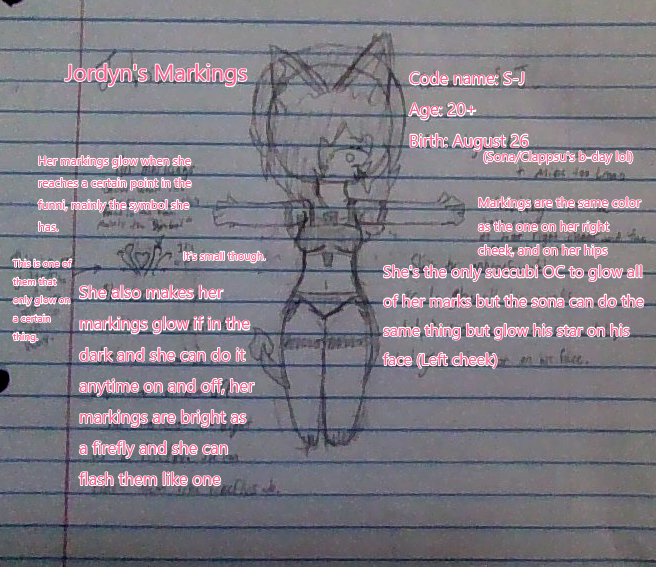 Jordyn's Markings
Code name: S-J
Age: 20+
Birth: August 26
(Sona/Clappsu's b-day lol)
Her markings glow when she
reaches a certain point in the
funni, mainly the symbol she
has.
Markings are the same color
as the one on her right
cheek, and on her hips
This is one of
them that
only glow on
a certain
thing.
It's small though.
She's the only succubi OC to glow all
of her marks but the sona can do the
same thing but glow his star on his
face (Left cheek)
She also makes her
markings glow if in the
dark and she can do it
anytime on and off, her
markings are bright as
a firefly and she can
flash them like one